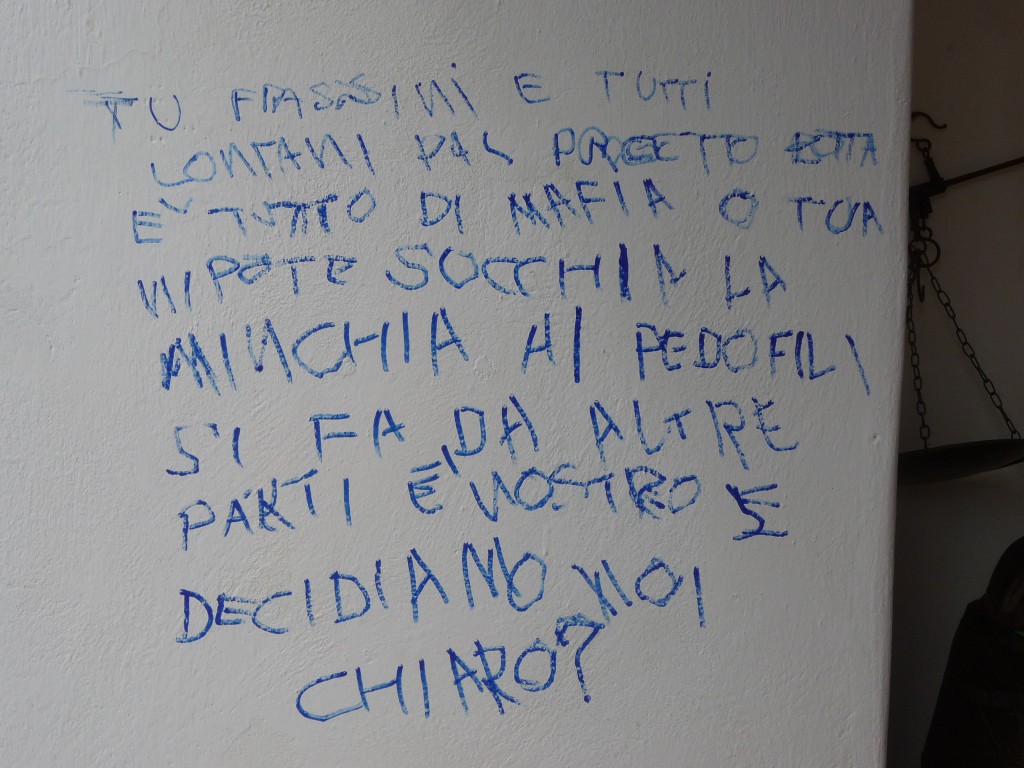 TU FRASSINI E TUTTI
LONTANI DAL PROGETTO BOTTA
E' TUTTO DI MAFIA O TUA
NIPOTE SUCCHIA LA
MINCHIA AI PEDOFILI
SI FA DA ALTRE
PARTI E' NOSTRO E
DECIDIAMO NOI
CHIARO?